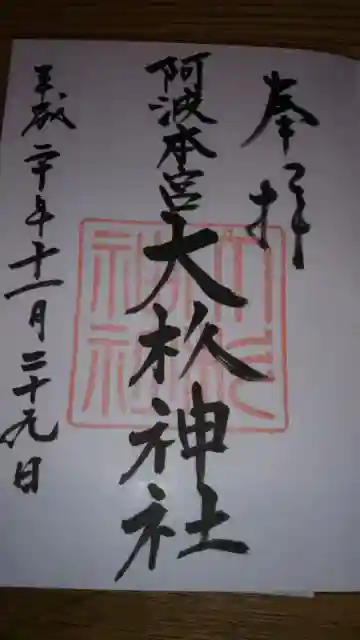 奉拝
阿波本宮
大杦神社
大杉神社
平成二十年十一月二十九日